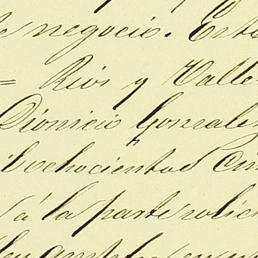 e negocio. Esta
= Rios y Valle
Dionicio Gonzale
il ochocientos cin
s á la parte solici